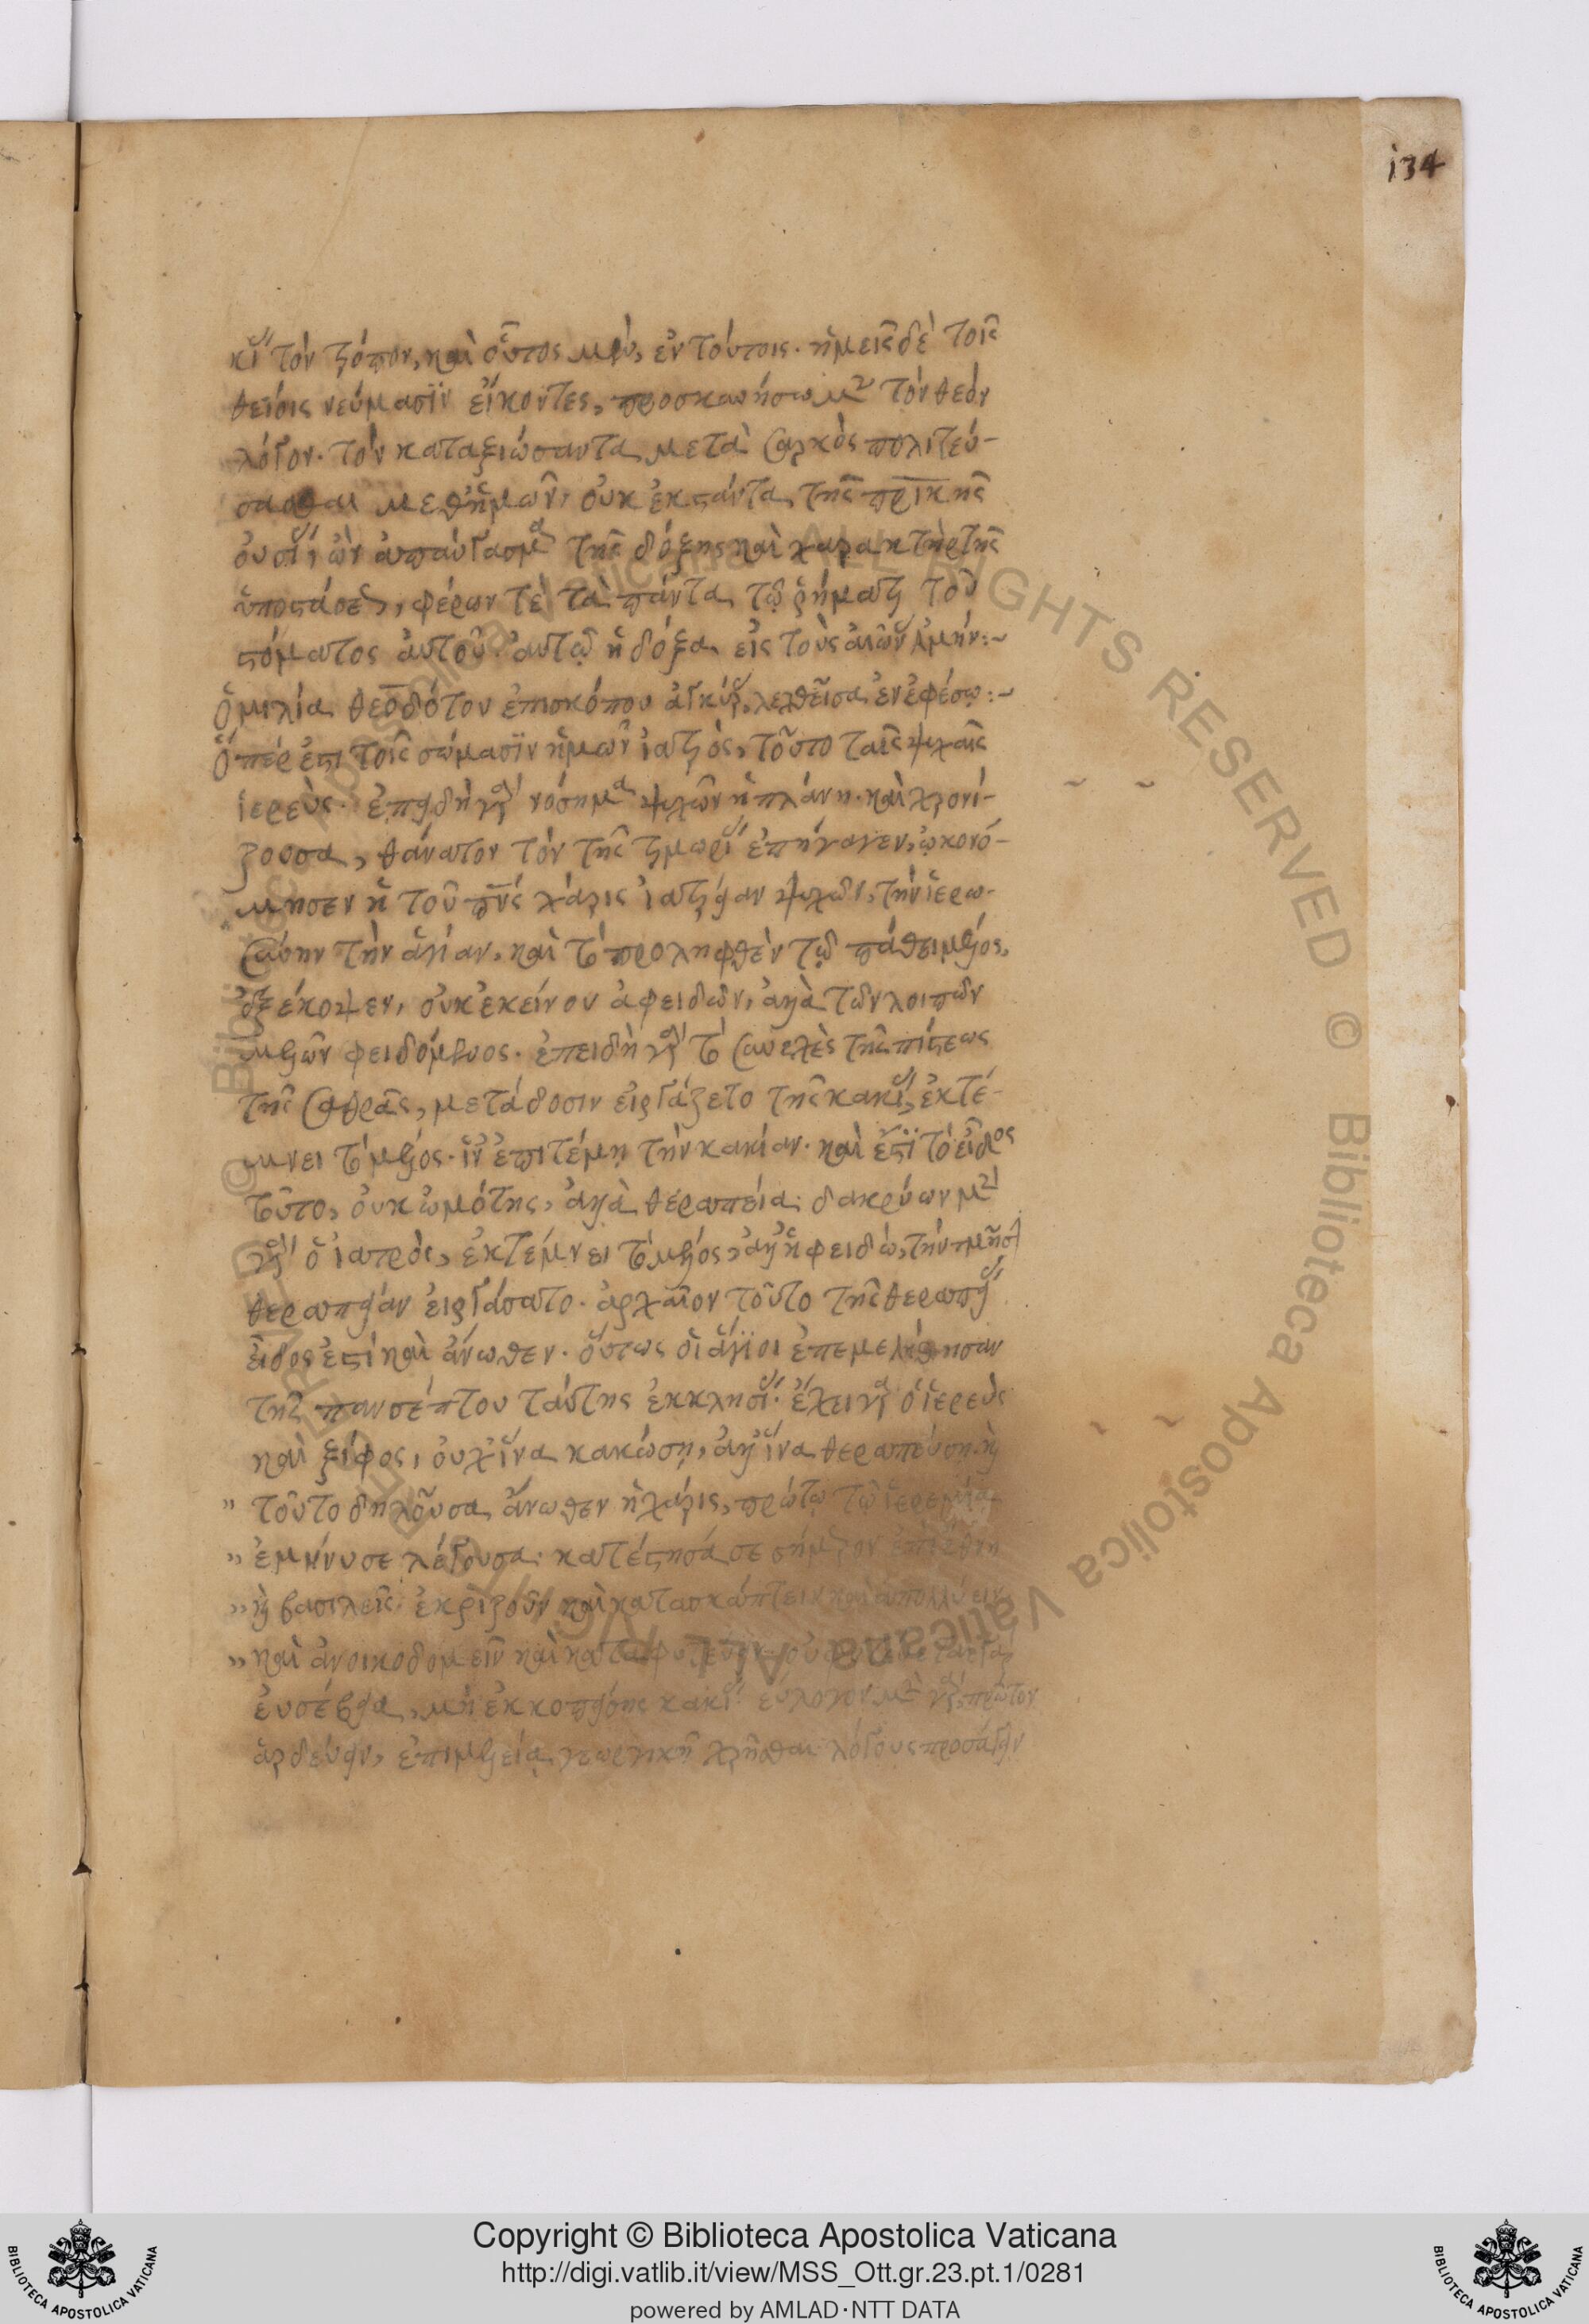 134
κί τὸν τρόπον, καὶ οὗτος μὲν, ἐν τούτοις. ἡμεῖς δὲ τοῖς
θείοις νεύμασϊν εἴκοντες, προσκυνήσωμ τὸν θεὸν
λόγον. τὸν καταξιώσαντα μετὰ σαρκὸς πολιτεύ-
σασθαι μεθ ἡμῶν, οὐκ ἐκστάντα τῆς πρικῆς
οὐσί, ὢν ἀπαύγασμα τῆς δόξης καὶ χαρακτὴρ τῆς
ὑποστάσε, φέρων τὲ τὰ πάντα τῷ ῥήματι τοῦ
στόματος αὐτοῦ. αὐτῷ ἡ δόξα εἰς τοὺς αἰῶν ἀμήν:~
Ὁμιλία θεοδότου ἐπισκόπου ἀγκύρ, λεχθεῖσα ἐν ἐφέσῳ:~
Ὅπέρ ἐστι τοῖς σώμασϊν ἡμῶν ἰατρὸς, τοῦτο ταῖς ψυχαῖς
ἱερεὺς. ἐπειδὴ γὰρ νόσημα ψυχῶν ἡ πλάνη. καὶ χρονί-
ζουσα, θάνατον τὸν τῆς τιμωρί ἐπήγαγεν, ᾠκονό-
μησεν ἡ τοῦ πνς χάρις ἰατρείαν ψυχῶν, τὴν ἱερω-
σύνην τὴν ἁγίαν, καὶ τὸ προληφθὲν τῷ πάθει μέλος,
ἐξέκοψεν, οὐκ ἐκείνου ἀφειδῶν, ἀλλὰ τῶν λοιπῶν
μελῶν φειδόμενος. ἐπειδὴ γὰρ τὸ συνεχὲς τῆς πίστεως
τῆς σαθρᾶς, μετάδοσιν εἰργάζετο τῆς κακί, ἐκτέ-
μνει τὸ μέλος. ἵν ἐπιτέμῃ τὴν κακίαν. καὶ ἔστϊ τὸ εἶδος
τοῦτο, οὐκ ὠμότης, ἀλλὰ θεραπεία. δακρύων μὲ
γὰρ ὁ ἰατρὸς, ἐκτέμνει τὸ μέλος, ἀλλ ἡ φειδὼ, τὴν τμῆσ
θεραπείαν εἰργάσατο. ἀρχαῖον τοῦτο τῆς θεραπεί
εἶδος ἐστὶ καὶ ἄνωθεν. οὕτως οἱ ἅγϊοι ἐπεμελήθησαν
τῆς πανσέπτου ταύτης ἐκκλησί. ἔχει γὰρ ὁ ἱερεὺς
καὶ ξίφος, οὐχ ἵνα κακώσῃ, ἀλλ ἵνα θεραπεύσῃ. καὶ
" τοῦτο δηλοῦσα ἄνωθεν ἡ χάρις, πρώτῳ τῷ ἱερεμίᾳ
" ἐμήνυσε λέγουσα. κατέστησά σε σήμερον ἐπὶ ἔθνη
" καὶ βασιλεῖς. ἐκριζοῦν καὶ κατασκάπτειν καὶ ἀπολλύειν
" καὶ ἀνοικοδομεῖν καὶ καταφυτεύειν. οὐ φυτεύεται γὰρ
εὐσέβεια, μὴ ἐκκοπείσης κακί. εὔλογον μὲ γὰρ πρῶτον
ἀρδεύειν, ἐπιμελείᾳ γεωργικῇ χρῆσθαι. λόγους προσάγειν
© Biblioteca Apostolica Vaticana ALL RIGHTS RESERVED © Biblioteca Apostolica Vaticana ALL RIGHTS RESERVED
BIBLIOTECA APOSTOLICA VATICANA
Copyright © Biblioteca Apostolica Vaticana
http://digi.vatlib.it/view/MSS_Ott.gr.23.pt.1/0281
powered by AMLAD·NTT DATA
BIBLIOTECA APOSTOLICA VATICANA